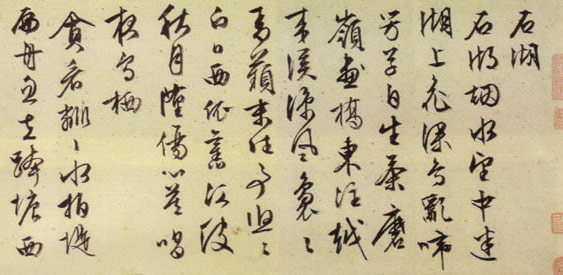 石湖
石湖烟水望中迷
湖上花深鳥亂啼
芳草自生茶磨
嶺畫橋東注越
来溪涼風裊〻
青蘋末往事悠〻
白日西依舊江波
秋月墮傷心莫唱
夜烏栖
貪看粼〻水拍堤
舟忽在跨塘西